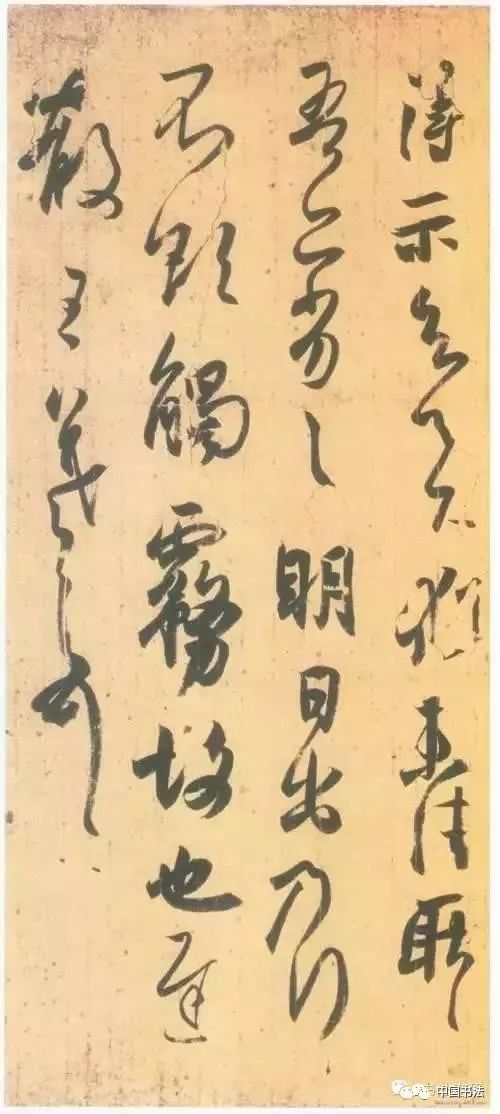 得示知足下猶未佳耿耿
吾亦劣劣明日出乃行
不欲觸霧故也遲
散王羲之頓首
中国书法